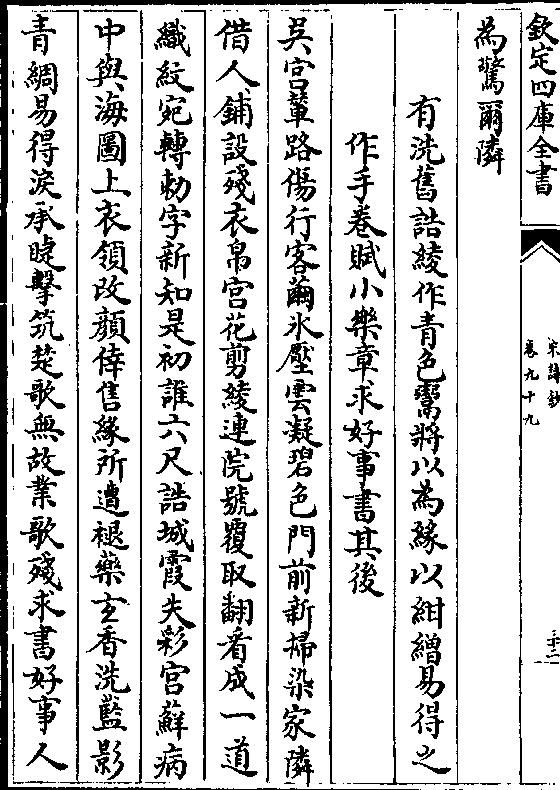 欽定四庫全書
宋詩鈔
卷九十九
三十二
為驚爾隣
有洗舊誥綾作青色鬻將以為緣以紺繒易得之
作手卷賦小樂章求好事書其後
吳宮輦路傷行客繭氷壓雲凝碧色門前新掃染家隣
借人鋪設殘衣帛宮花剪綾連院號覆取翻看成一道
織紋宛轉勅字新知是初誰六尺誥城霞失彩宮蘇病
中與海圖上衣領改顔倖售緣所遭褪藥玄香洗藍影
青綢易得淚承睫擊筑楚歌無故業歌殘求書好事人